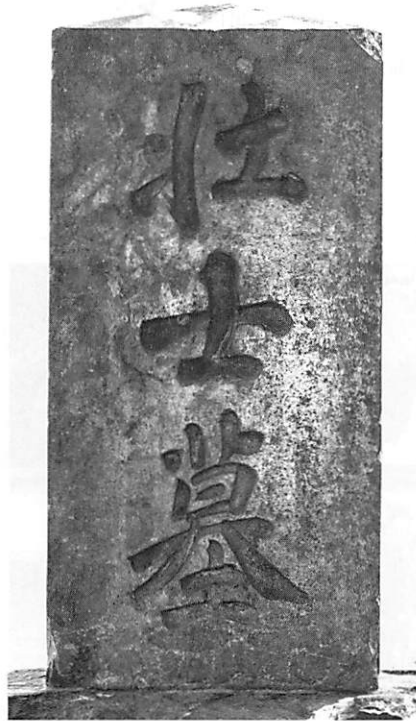 壮士墓